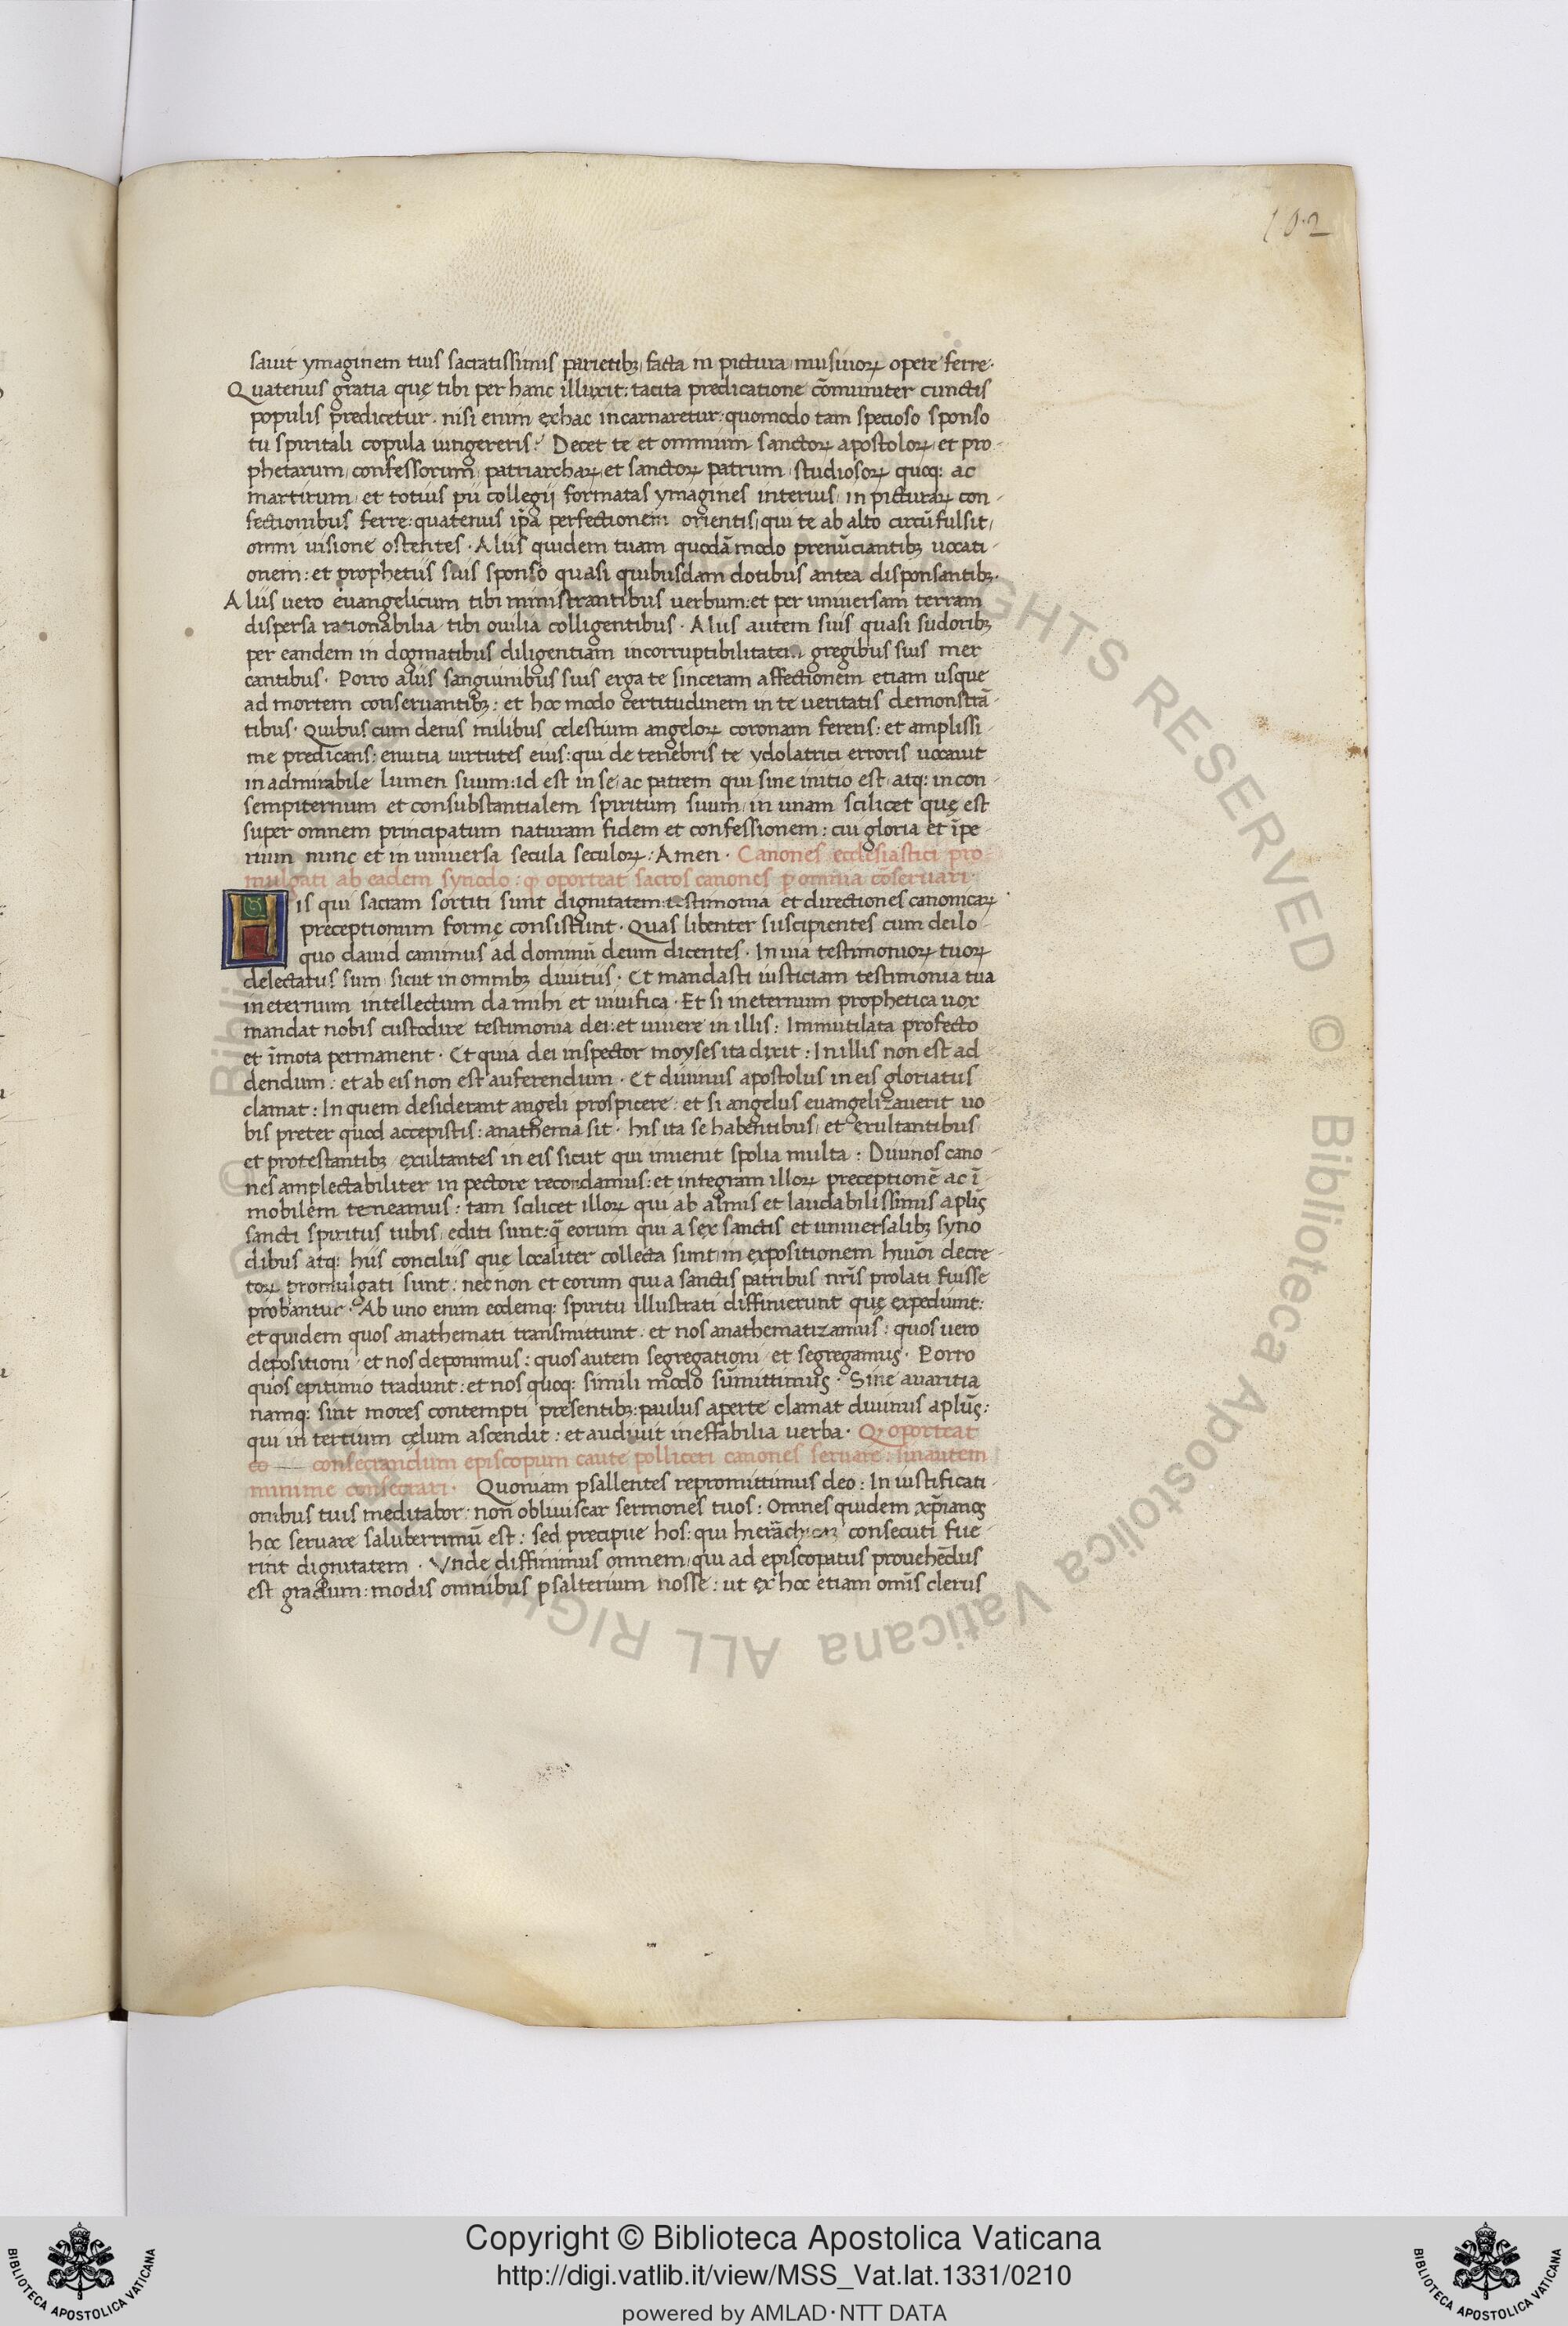 102
sauit ymaginem tuis sacratissimis parietibꝫ facta in pictura musiuoꝝ opere ferre·
Quatenus gratia quę tibi per hanc illuxit: tacita predicatione cōmuniter cunctis
populis predicetur· nisi enim ex hac incarnaretur: quomodo tam specioso sponso
tu spiritali copula iungereris? Decet te et omnium sanctoꝝ apostoloꝝ et pro-
phetarum, confessorum, patriarchaꝝ et sanctoꝝ patrum, studiosoꝝ quoqꝫ ac
martirum, et totius pii collegii formatas ymagines interius, in picturaꝝ con-
fectionibus ferre: quatenus ip̄a perfectionem orientis, qui te ab alto circūfulsit,
omni uisione ostentes· Aliis quidem tuam quodā modo prenūciantibꝫ uocati-
onem: et prophetiis suis sponso quasi quibusdam dotibus antea disponsantibꝫ·
Aliis uero euangelicum tibi ministrantibus uerbum: et per uniuersam terram
dispersa rationabilia tibi ouilia colligentibus· Aliis autem suis quasi sudoribꝫ
per eandem in dogmatibus diligentiam incorruptibilitatem gregibus suis mer
cantibus· Porro aliis sanguinibus suis erga te sinceram affectionem etiam usque
ad mortem conseruantibꝫ: et hoc modo certitudinem in te ueritatis demonstrā-
tibus· Quibus cum denis milibus celestium angeloꝝ coronam ferens: et amplissi-
me predicans: enutia uirtutes eius: qui de tenebris te ydolatrici erroris uocauit
in admirabile lumen suum: id est in se, ac patrem qui sine initio est, atqꝫ in con-
sempiternum et consubstantialem spiritum suum, in unam scilicet quę est
super omnem principatum naturam fidem et confessionem: cui gloria et īpe-
rium nunc et in uniuersa secula seculoꝝ: Amen· Canones ecclesiastici pro
mulgati ab eadem synodo: ꝙ oporteat sacros canones ꝑ omnia cōseruari·
His qui sacram sortiti sunt dignitatem: testimonia et directiones canonicaꝝ
preceptionum formę consistunt· Quas libenter suscipientes cum deilo
quo dauid canimus ad dominū deum dicentes· In uia testimonioꝝ tuoꝝ
delectatus sum sicut in omnibꝫ diuitiis· Et mandasti iusticiam testimonia tua
in eternum intellectum da mihi et uiuifica· Et si in eternum prophetica uox
mandat nobis custodire testimonia dei: et uiuere in illis: Immutilata profecto
et īmota permanent· Et quia dei inspector moyses ita dixit: In illis non est ad-
dendum: et ab eis non est auferendum· Et diuinus apostolus in eis gloriatus
clamat: In quem desiderant angeli prospicere: et si angelus euangelizauerit uo
bis preter quod accepistis: anathema sit· his ita se habentibus, et exultantibus
et protestantibꝫ, exultantes in eis sicut qui inuenit spolia multa: Diuinos cano-
nes amplectabiliter in pectore recondamus: et integram illoꝝ preceptionē ac ī-
mobilem teneamus: tam scilicet illoꝝ qui ab almis et laudabilissimis aplīs
sancti spiritus tubis, editi sunt: q̄ eorum qui a sex sanctis et uniuersalibꝫ syno
dibus atqꝫ hiis conciliis quę localiter collecta sunt, in expositionem huiōi decre-
toꝝ promulgati sunt: nec non et eorum qui a sanctis patribus nr̄is prolati fuisse
probantur· Ab uno enim eodemqꝫ spiritu illustrati diffinierunt quę expediunt:
et quidem quos anathemati transmittunt· et nos anathematizamus: quos uero
depositioni et nos deponimus: quos autem segregationi et segregamus· Porro
quos epitimio tradunt: et nos quoqꝫ simili modo sūmittimus· Sine auaritia
namqꝫ sint mores contempti presentibꝫ: paulus aperte clamat diuinus aplūs:
qui in tertium cęlum ascendit: et audiuit ineffabilia uerba· Qꝫ oporteat
eo — consecrandum episcopum caute polliceri canones seruare: sin autem
minime consecrari· Quoniam psallentes repromittimus deo: In iustificati-
onibus tuis meditabor· non obliuiscar sermones tuos: Omnes quidem xp̄ianos
hoc seruare saluberrimū est: sed precipue hos: qui consecuti fue-
rint dignitatem· Vnde diffinimus omnem, qui ad episcopatus prouehēdus
est gradum: modis omnibus psalterium nosse: ut ex hoc etiam omīs clerus
© Biblioteca Apostolica Vaticana ALL RIGHTS RESERVED
Copyright © Biblioteca Apostolica Vaticana
http://digi.vatlib.it/view/MSS_Vat.lat.1331/0210
powered by AMLAD·NTT DATA
BIBLIOTECA APOSTOLICA VATICANA
BIBLIOTECA APOSTOLICA VATICANA